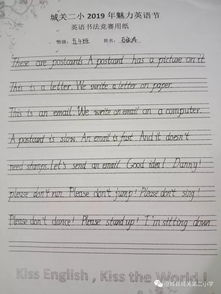 城关二小 2019 年魅力英语节
英语书法竞赛用纸
班级: 姓名:
These are postcards. A postcard has a picture on it.
This is a letter. We write a letter on paper.
This is an email. We write an email on a computer.
A postcard is slow. An email is fast. And it doesn't
need stamps. Let's send an email. Good idea! Danny!
please don't run. Please don't jump! Please don't sing!
Please don't dance! Please stand up! I'm sitting down
Kiss English , Kiss the World !